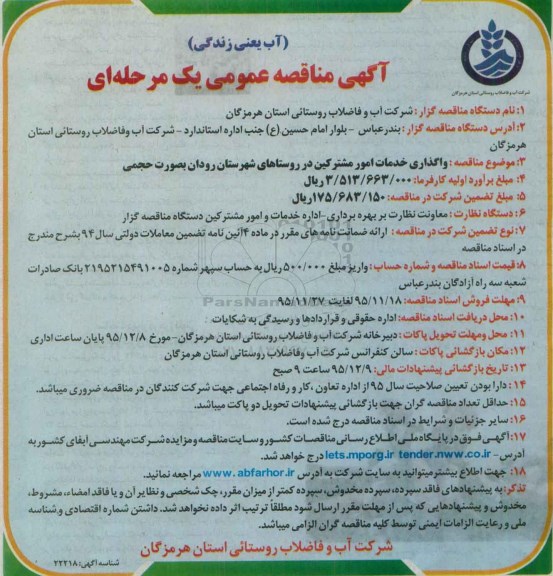 (آب یعنی زندگی)
آگهی مناقصه عمومی یک مرحله‌ای
شرکت آب و فاضلاب روستائی استان هرمزگان
۱: نام دستگاه مناقصه گزار : شرکت آب و فاضلاب روستائی استان هرمزگان
۲: آدرس دستگاه مناقصه گزار : بندرعباس - بلوار امام حسین (ع) جنب اداره استاندارد - شرکت آب وفاضلاب روستائی استان
هرمزگان
۳: موضوع مناقصه : واگذاری خدمات امور مشترکین در روستاهای شهرستان رودان بصورت حجمی
۴: مبلغ برآورد اولیه کارفرما: ۳/۵۱۳/۶۶۳/۰۰۰ ریال
۵: مبلغ تضمین شرکت در مناقصه: ۱۷۵/۶۸۳/۱۵۰ریال
۶ : دستگاه نظارت : معاونت نظارت بر بهره برداری -اداره خدمات و امور مشترکین دستگاه مناقصه گزار
۷: نوع تضمین شرکت در مناقصه : ارائه ضمانت نامه های مقرر در ماده ۴آئین نامه تضمین معاملات دولتی سال۹۴ بشرح مندرج
در اسناد مناقصه
۸: قیمت اسناد مناقصه و شماره حساب : واریز مبلغ ۵۰۰/۰۰۰ ریال به حساب سپهر شماره ۲۱۹۵۲۱۵۴۹۱۰۰۵ بانک صادرات
شعبه سه راه آزادگان بندرعباس
۹: مهلت فروش اسناد مناقصه: ۹۵/۱۱/۱۸ لغایت ۹۵/۱۱/۲۷
۱۰: محل دریافت اسناد مناقصه: اداره حقوقی و قراردادها و رسیدگی به شکایات
۱۱: محل ومهلت تحویل پاکات : دبیرخانه شرکت آب و فاضلاب روستائی استان هرمزگان-مورخ ۹۵/۱۲/۸ پایان ساعت اداری
۱۲: مکان بازگشائی پاکات : سالن کنفرانس شرکت آب وفاضلاب روستائی استان هرمزگان
۱۳: تاریخ بازگشائی پیشنهادات مالی: ۹۵/۱۲/۹ ساعت ۹ صبح
۱۴: دارا بودن تعیین صلاحیت سال ۹۵ از اداره تعاون ،کار و رفاه اجتماعی جهت شرکت کنندگان در مناقصه ضروری میباشد.
۱۵: حداقل تعداد مناقصه گران جهت بازگشائی پیشنهادات تحویل دو پاکت میباشد.
۱۶: سایر جزئیات و شرایط در اسناد مناقصه درج شده است.
۱۷: آگهی فوق در پایگاه ملی اطلاع رسانی مناقصات کشور وسایت مناقصه ومزایده شرکت مهندسی آبفای کشور به
آدرس- iets.mporg.ir tender.nww.co.ir درج خواهد شد.
۱۸: جهت اطلاع بیشتر میتوانید به سایت شرکت به آدرس www.abfarhor.ir مراجعه نمائید.
تذکر: به پیشنهادهای فاقد سپرده، سپرده مخدوش، سپرده کمتر از میزان مقرر، چک شخصی و نظایر آن و یا فاقد امضاء، مشروط،
مخدوش و پیشنهادهایی که پس از مهلت مقرر ارسال شود مطلقاً ترتیب اثر داده نخواهد شد. داشتن شماره اقتصادی و شناسه
ملی و رعایت الزامات ایمنی توسط کلیه مناقصه گران الزامی میباشد.
شرکت آب و فاضلاب روستائی استان هرمزگان
شناسه آگهی: ۲۲۲۱۸